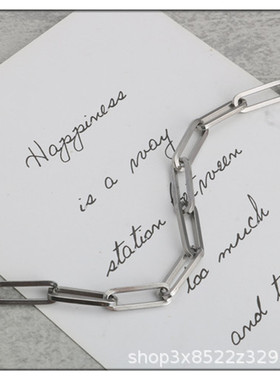 Happiness
is a way
station
too much
and t
shop3x8522z329